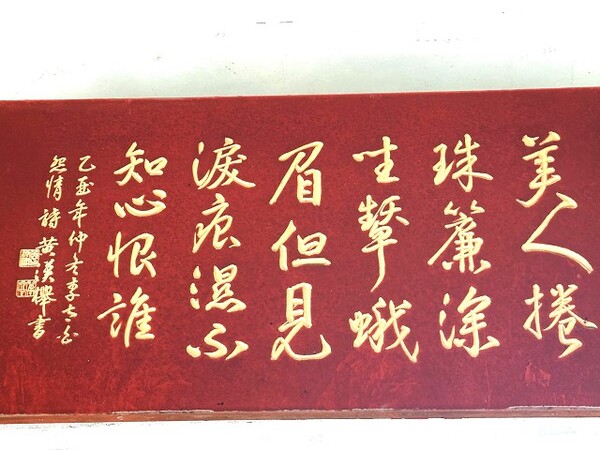 美人捲
珠簾深
坐顰蛾
眉但見
淚痕濕不
知心恨誰
乙酉年仲冬李太白
怨情詩 黃英舉書